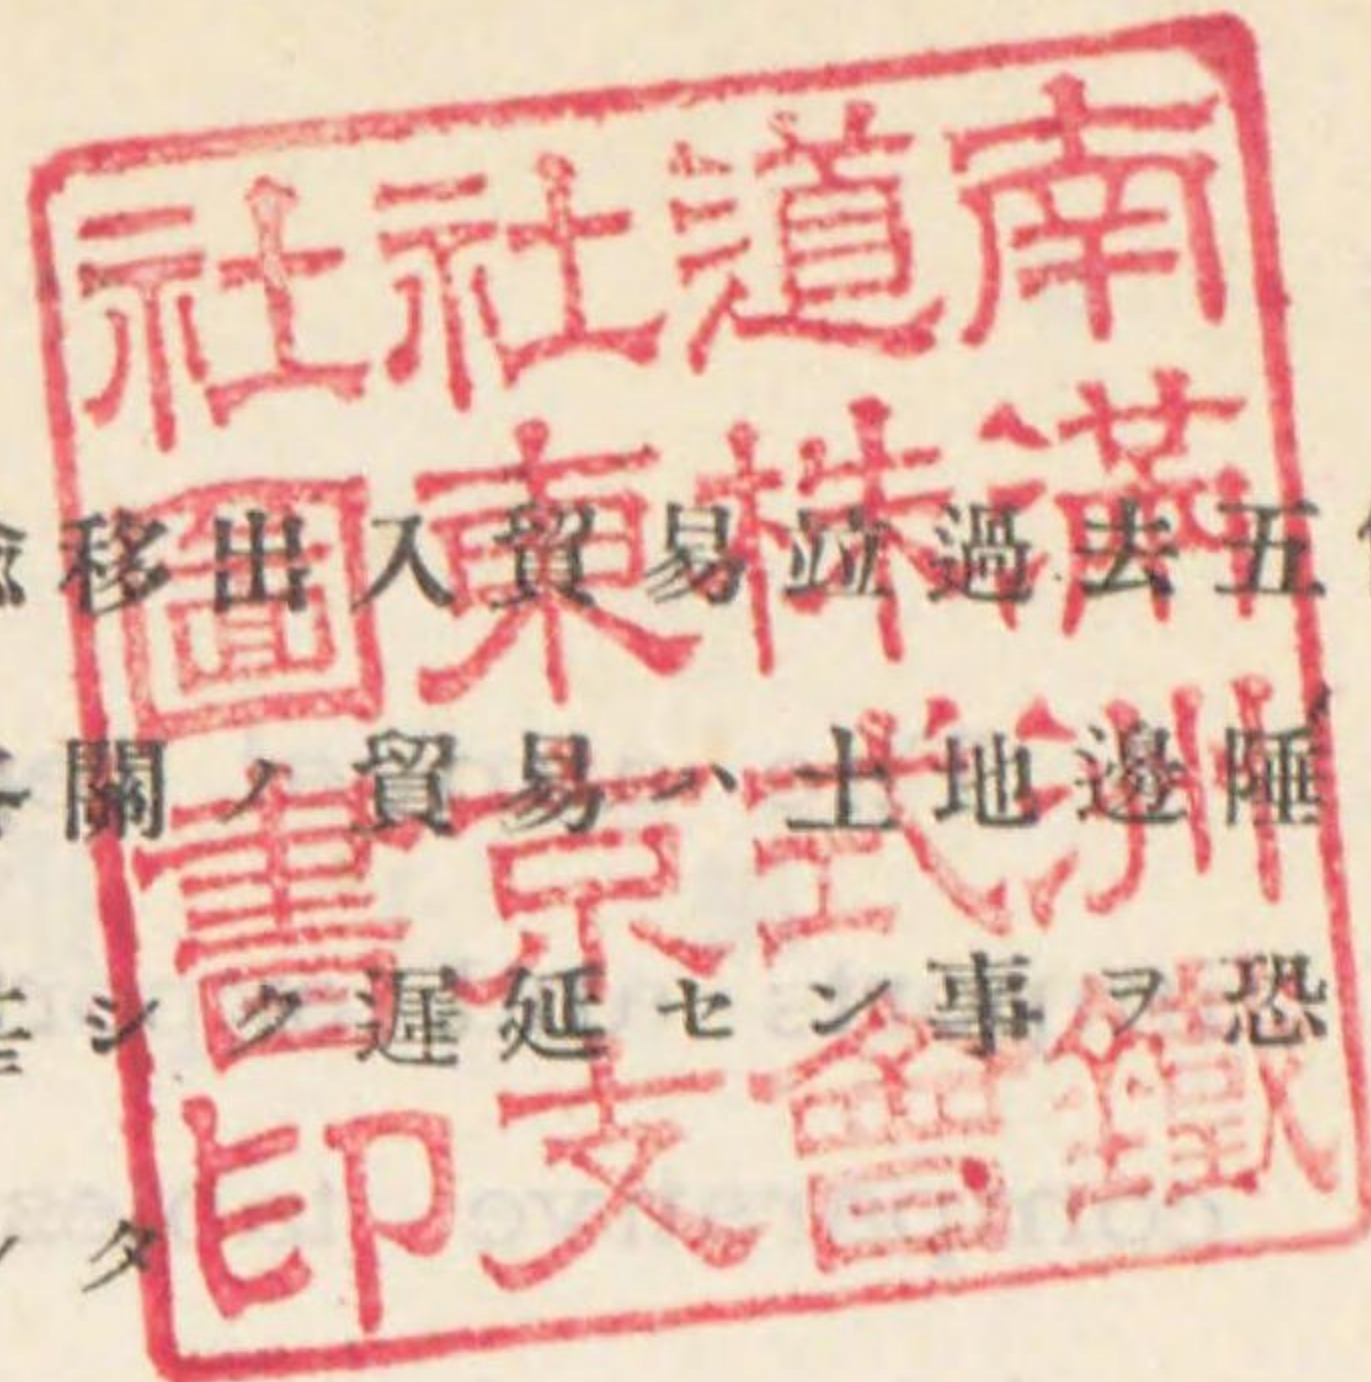 南滿洲鐵
道株式會
社東京支
社圖書印
移出入貿易並過去五
關ノ貿易ハ土地邊陲
シク遅延セン事ヲ恐
タ